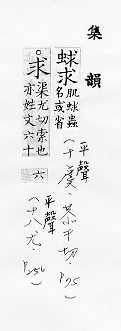 集韻
蛷求 肌蛷蟲
名或省
平聲
(十虞.恭于切.P75)
求 渠尤切索也
亦姓文六十
六
平聲
(十八尤.P256)